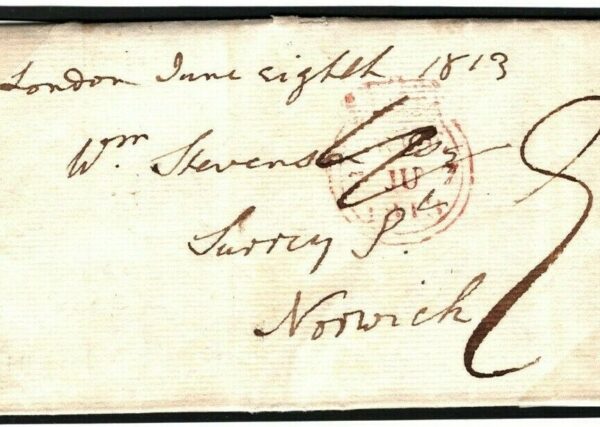 London June eighth 1813
Wm Stevenson Esq
JU
1813
Surrey St
Norwich